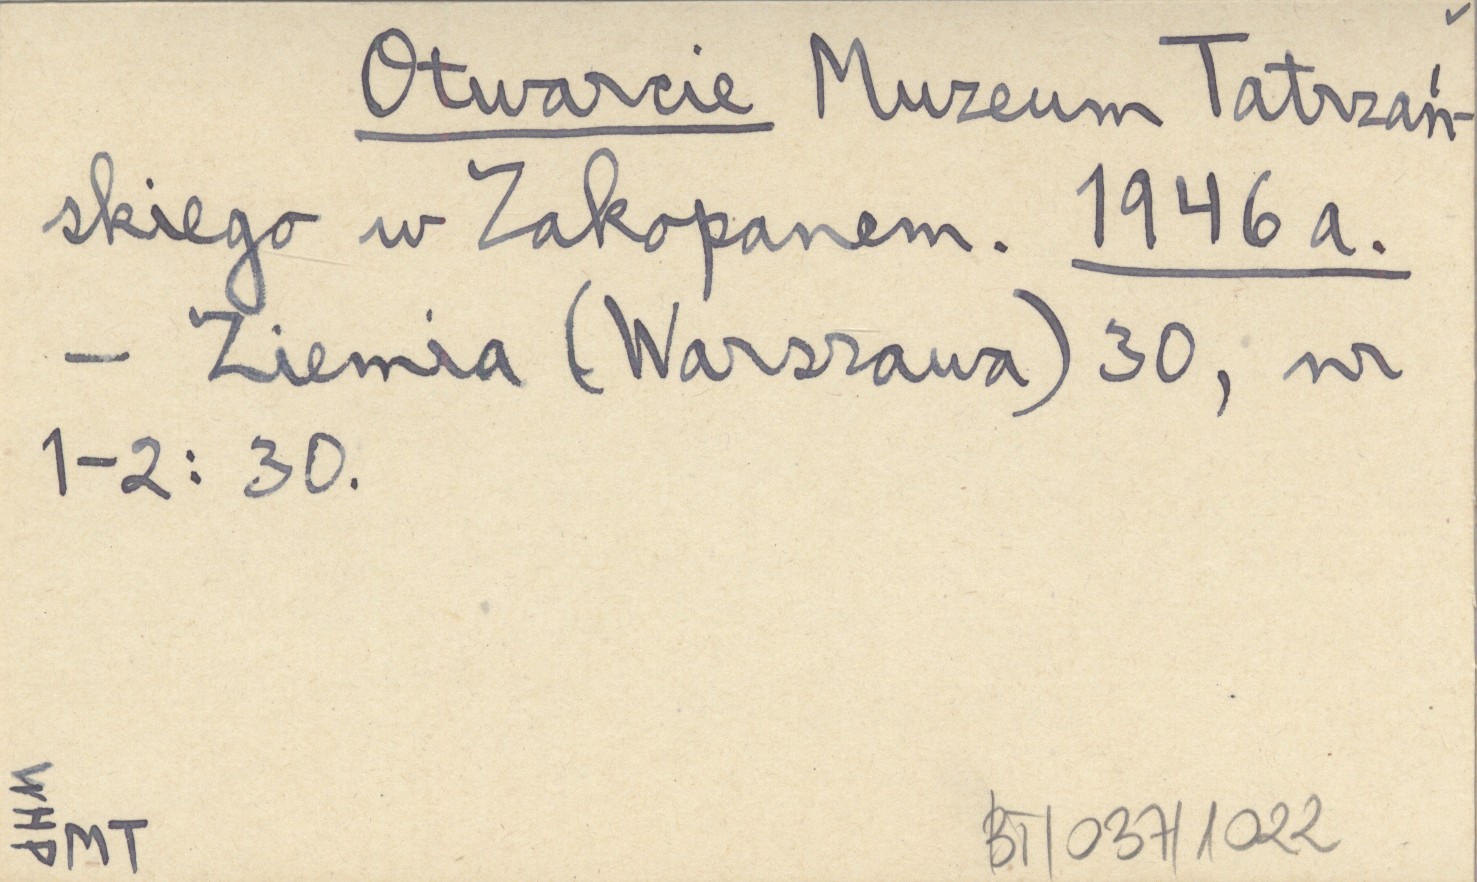 Otwarcie Muzeum Tatrzań-
skiego w Zakopanem. 1946 a.
— Ziemia (Warszawa) 30, nr
1-2: 30.
WHP
MT
BT/037/1022